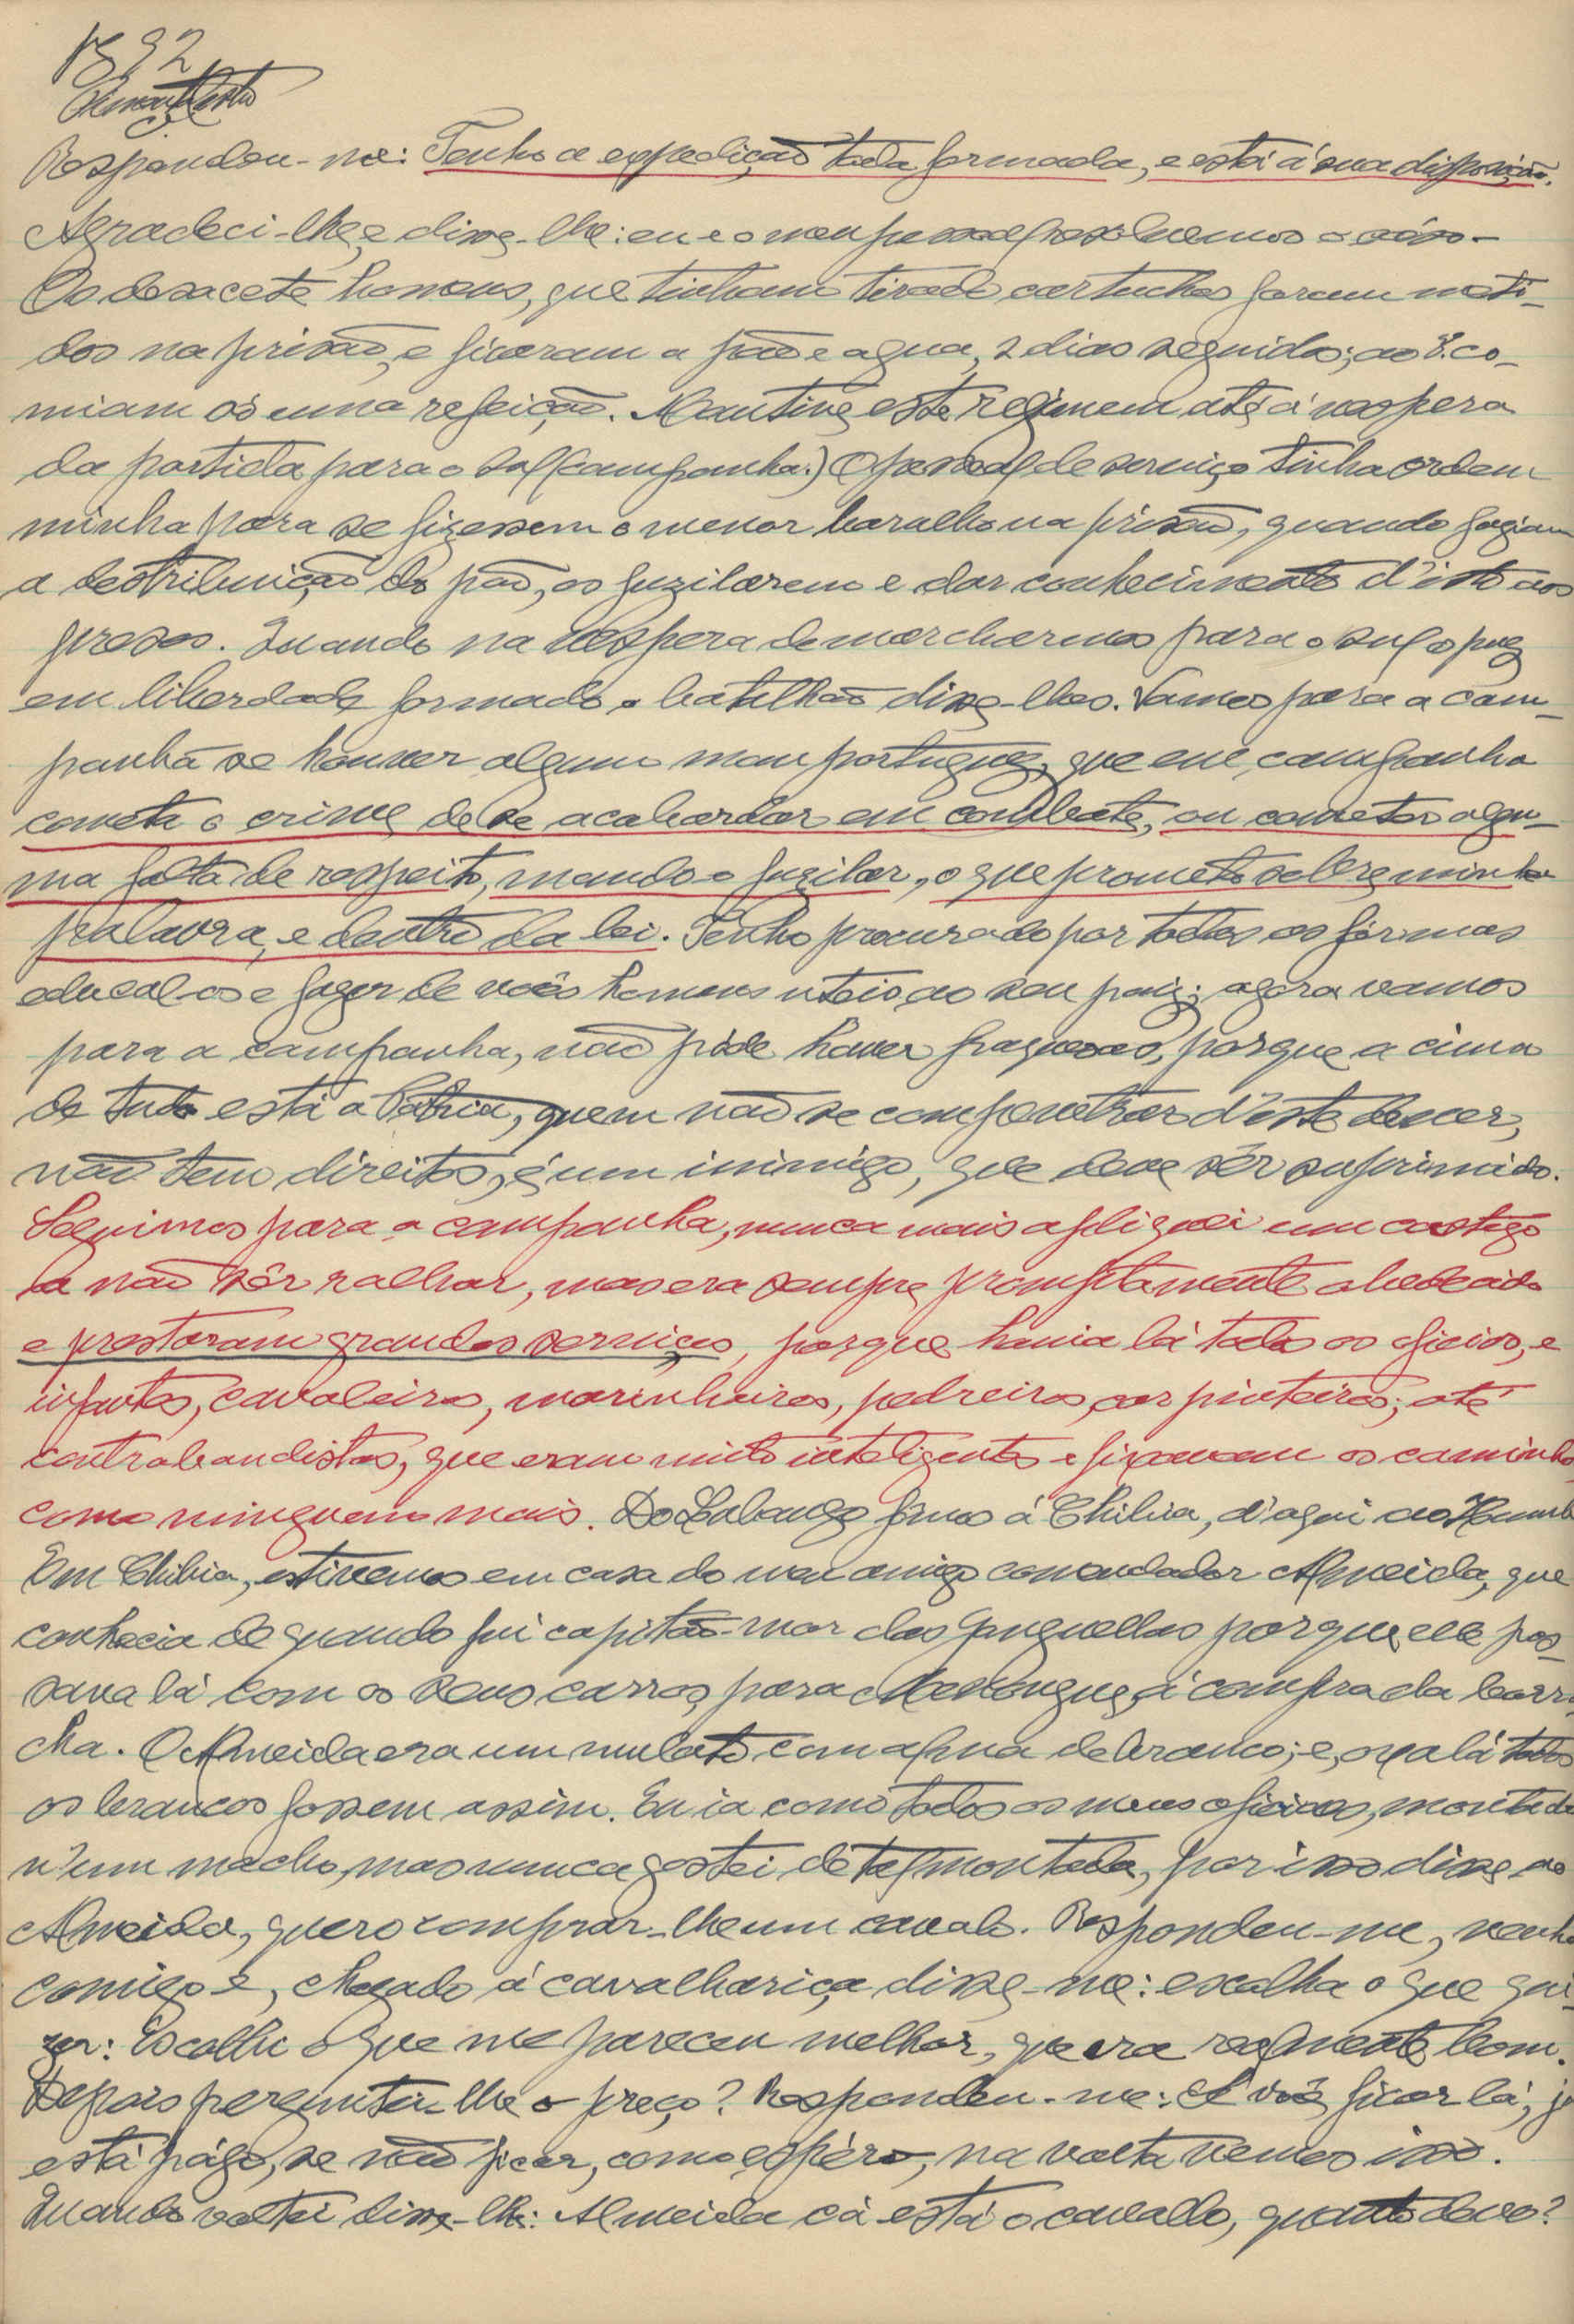 1892
Respondeu-me: Tenho a expedição toda formada, e está á sua disposição.
Agradeci-lhe, e disse-lhe: eu e o meu pessoal resolvemos o caso-
Os desacete homens, que tinham tirado cartuchos foram meti-
dos na prisão, e ficaram a pão e agua, 2 dias seguidos; ao 3º. co-
miam só uma refeição. Mantive este regimem até á vespera
da partida para o sul (campanha.) O pessoal de serviço tinha ordem
minha para se fizessem o menor barulho na prisão, quando faziam
a destribuição do pão, os fuzilarem e dar conhecimento d'isto aos
presos. Quando na vespera de marcharmos para o sul o puz
em liberdade formado o batalhão disse-lhes. Vamos para a cam-
panha se houver algum mau portuguez, que em campanha
cometa o crime de se acobardar em combate, ou cometer algu-
ma falta de respeito, mando-o fuzilar, o que prometo sobre minha
palavra, e dentro da lei. Tenho procurado por todas as formas
educal-os e fazer de vocês homens uteis ao seu paiz; agora vamos
para a campanha, não póde haver fraquezas, porque a cima
de tudo está a Patria, quem não se compenetrar d'este dever,
não tem direitos, é um inimigo, que deve sêr suprimido.
Seguimos para a campanha, nunca mais apliquei um castigo
a não sêr ralhar, mas era sempre promptamente obedecido
e prestaram grandes serviços, porque havia lá todos os oficios, e
infantes, cavaleiros, marinheiros, pedreiros, carpinteiros; até
contrabandistas, que eram muito inteligentes e fixavam os caminhos
como ninguem mais. Do Lubango fomos á Chibia, d'aqui ao Humbe
Em Chibia, estivemos em casa do meu amigo comendador Almeida, que
conhecia de quando fui capitão-mor das Ganguellas porque elle pas-
sava lá com os seus carros, para Menongue, á compra da borra-
cha. O Almeida era um mulato com alma de branco; e, oxalá todos
os brancos fossem assim. Eu ia como todos os meus oficiaes, montado
n'um macho, mas nunca gostei de tal montada, por isso disse ao
Almeida, quero comprar-lhe um cavalo. Respondeu-me, venha
comigo e, chegado á cavalhariça disse-me: escolha o que qui-
zer: Escolhi o que me pareceu melhor, que era realmente bom.
Depois perguntei-lhe o preço? Respondeu-me: Se vós ficar lá, já
está págo, se não ficar, como espéro, na volta vemos isso.
Quando voltei disse-lhe: Almeida cá está o cavallo, quanto devo?